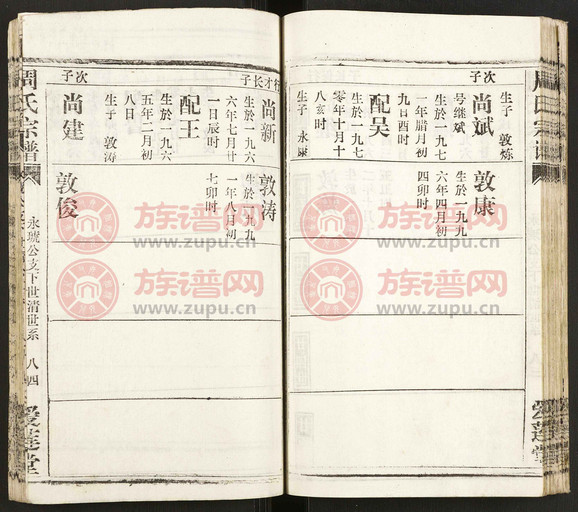 生子 敦炼
次子
尚斌
号继斌
生於一九七
一年腊月初
九日酉时
配吴
生於一九七
零年十月十
八亥时
生子 永康
敦康
生於一九九
六年四月初
四卯时
行才长子
尚新
生於一九六
六年七月廿
一日辰时
配王
生於一九六
五年二月初
八日
生子 敦涛
次子
尚建
敦涛
生於一九九
一年八月初
七卯时
敦俊
周氏宗谱
永琥公支下世清世系 八四
爱莲堂
周氏宗谱
爱莲堂
族谱网
www.zupu.cn
族谱网
www.zupu.cn
族谱网
www.zupu.cn
族谱网
www.zupu.cn